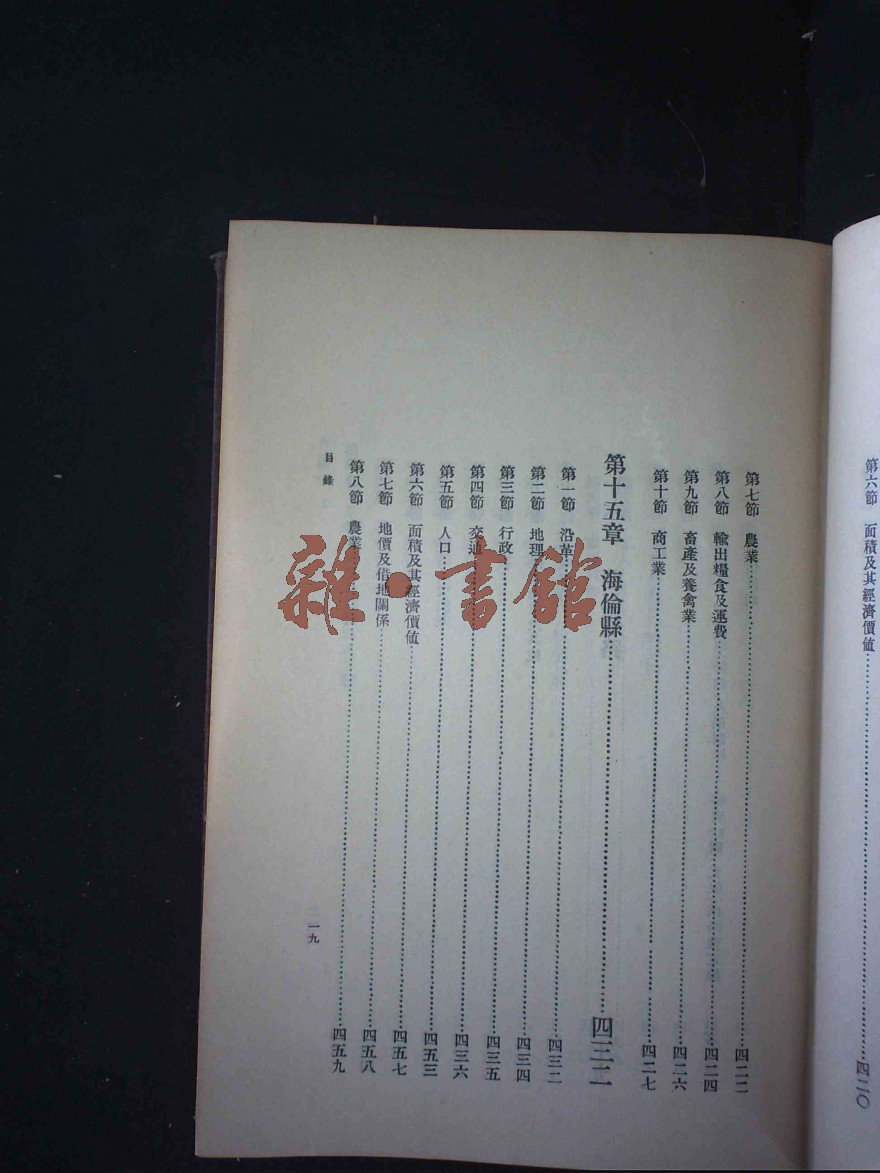 第六節 面積及其經濟價値……四二〇
第七節 農業……四二二
第八節 輸出糧食及運費……四二四
第九節 畜產及養禽業……四二六
第十節 商工業……四二七
第十五章 海倫縣……四三二
第一節 沿革……四三二
第二節 地理……四三四
第三節 行政……四三五
第四節 交通……四三六
第五節 人口……四五三
第六節 面積及其經濟價値……四五七
第七節 地價及借地關係……四五八
第八節 農業……四五九
目錄
一九
雜·書館